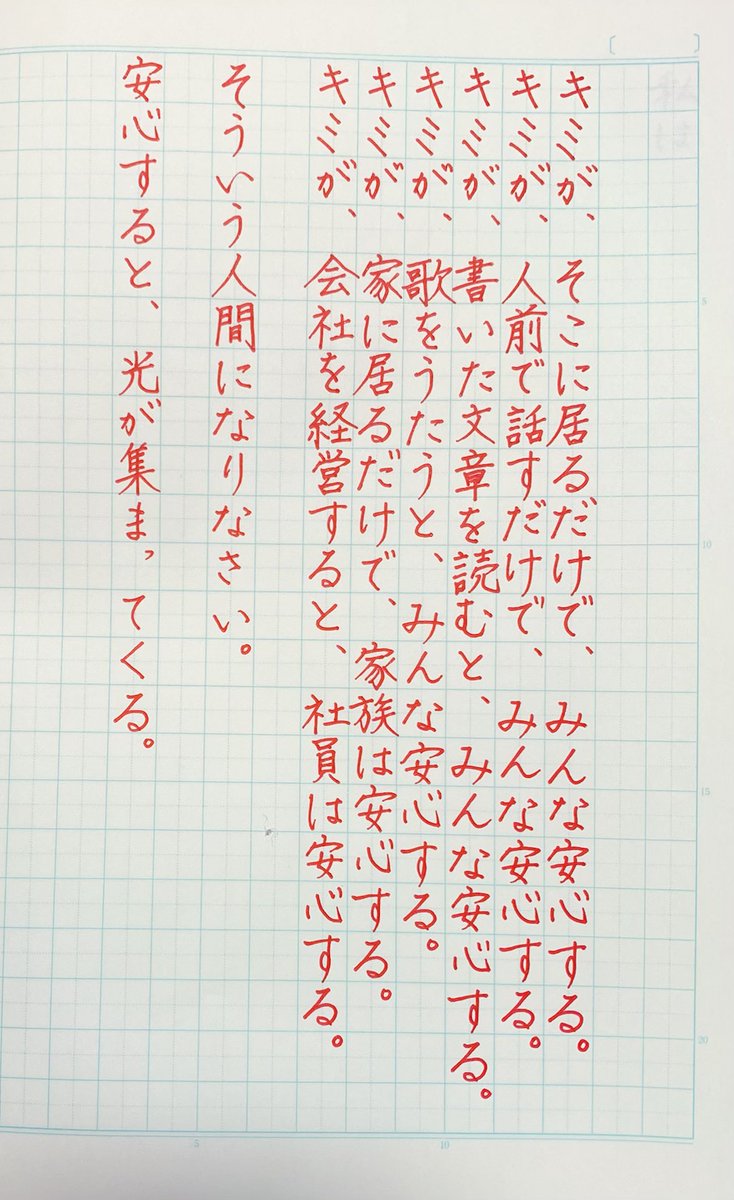 キミが、そこに居るだけで、みんな安心する。
キミが、人前で話すだけで、みんな安心する。
キミが、書いた文章を読むと、みんな安心する。
キミが、歌をうたうと、みんな安心する。
キミが、家に居るだけで、家族は安心する。
キミが、会社を経営すると、社員は安心する。
そういう人間になりなさい。
安心すると、光が集まってくる。
5
10
15
20
5
10